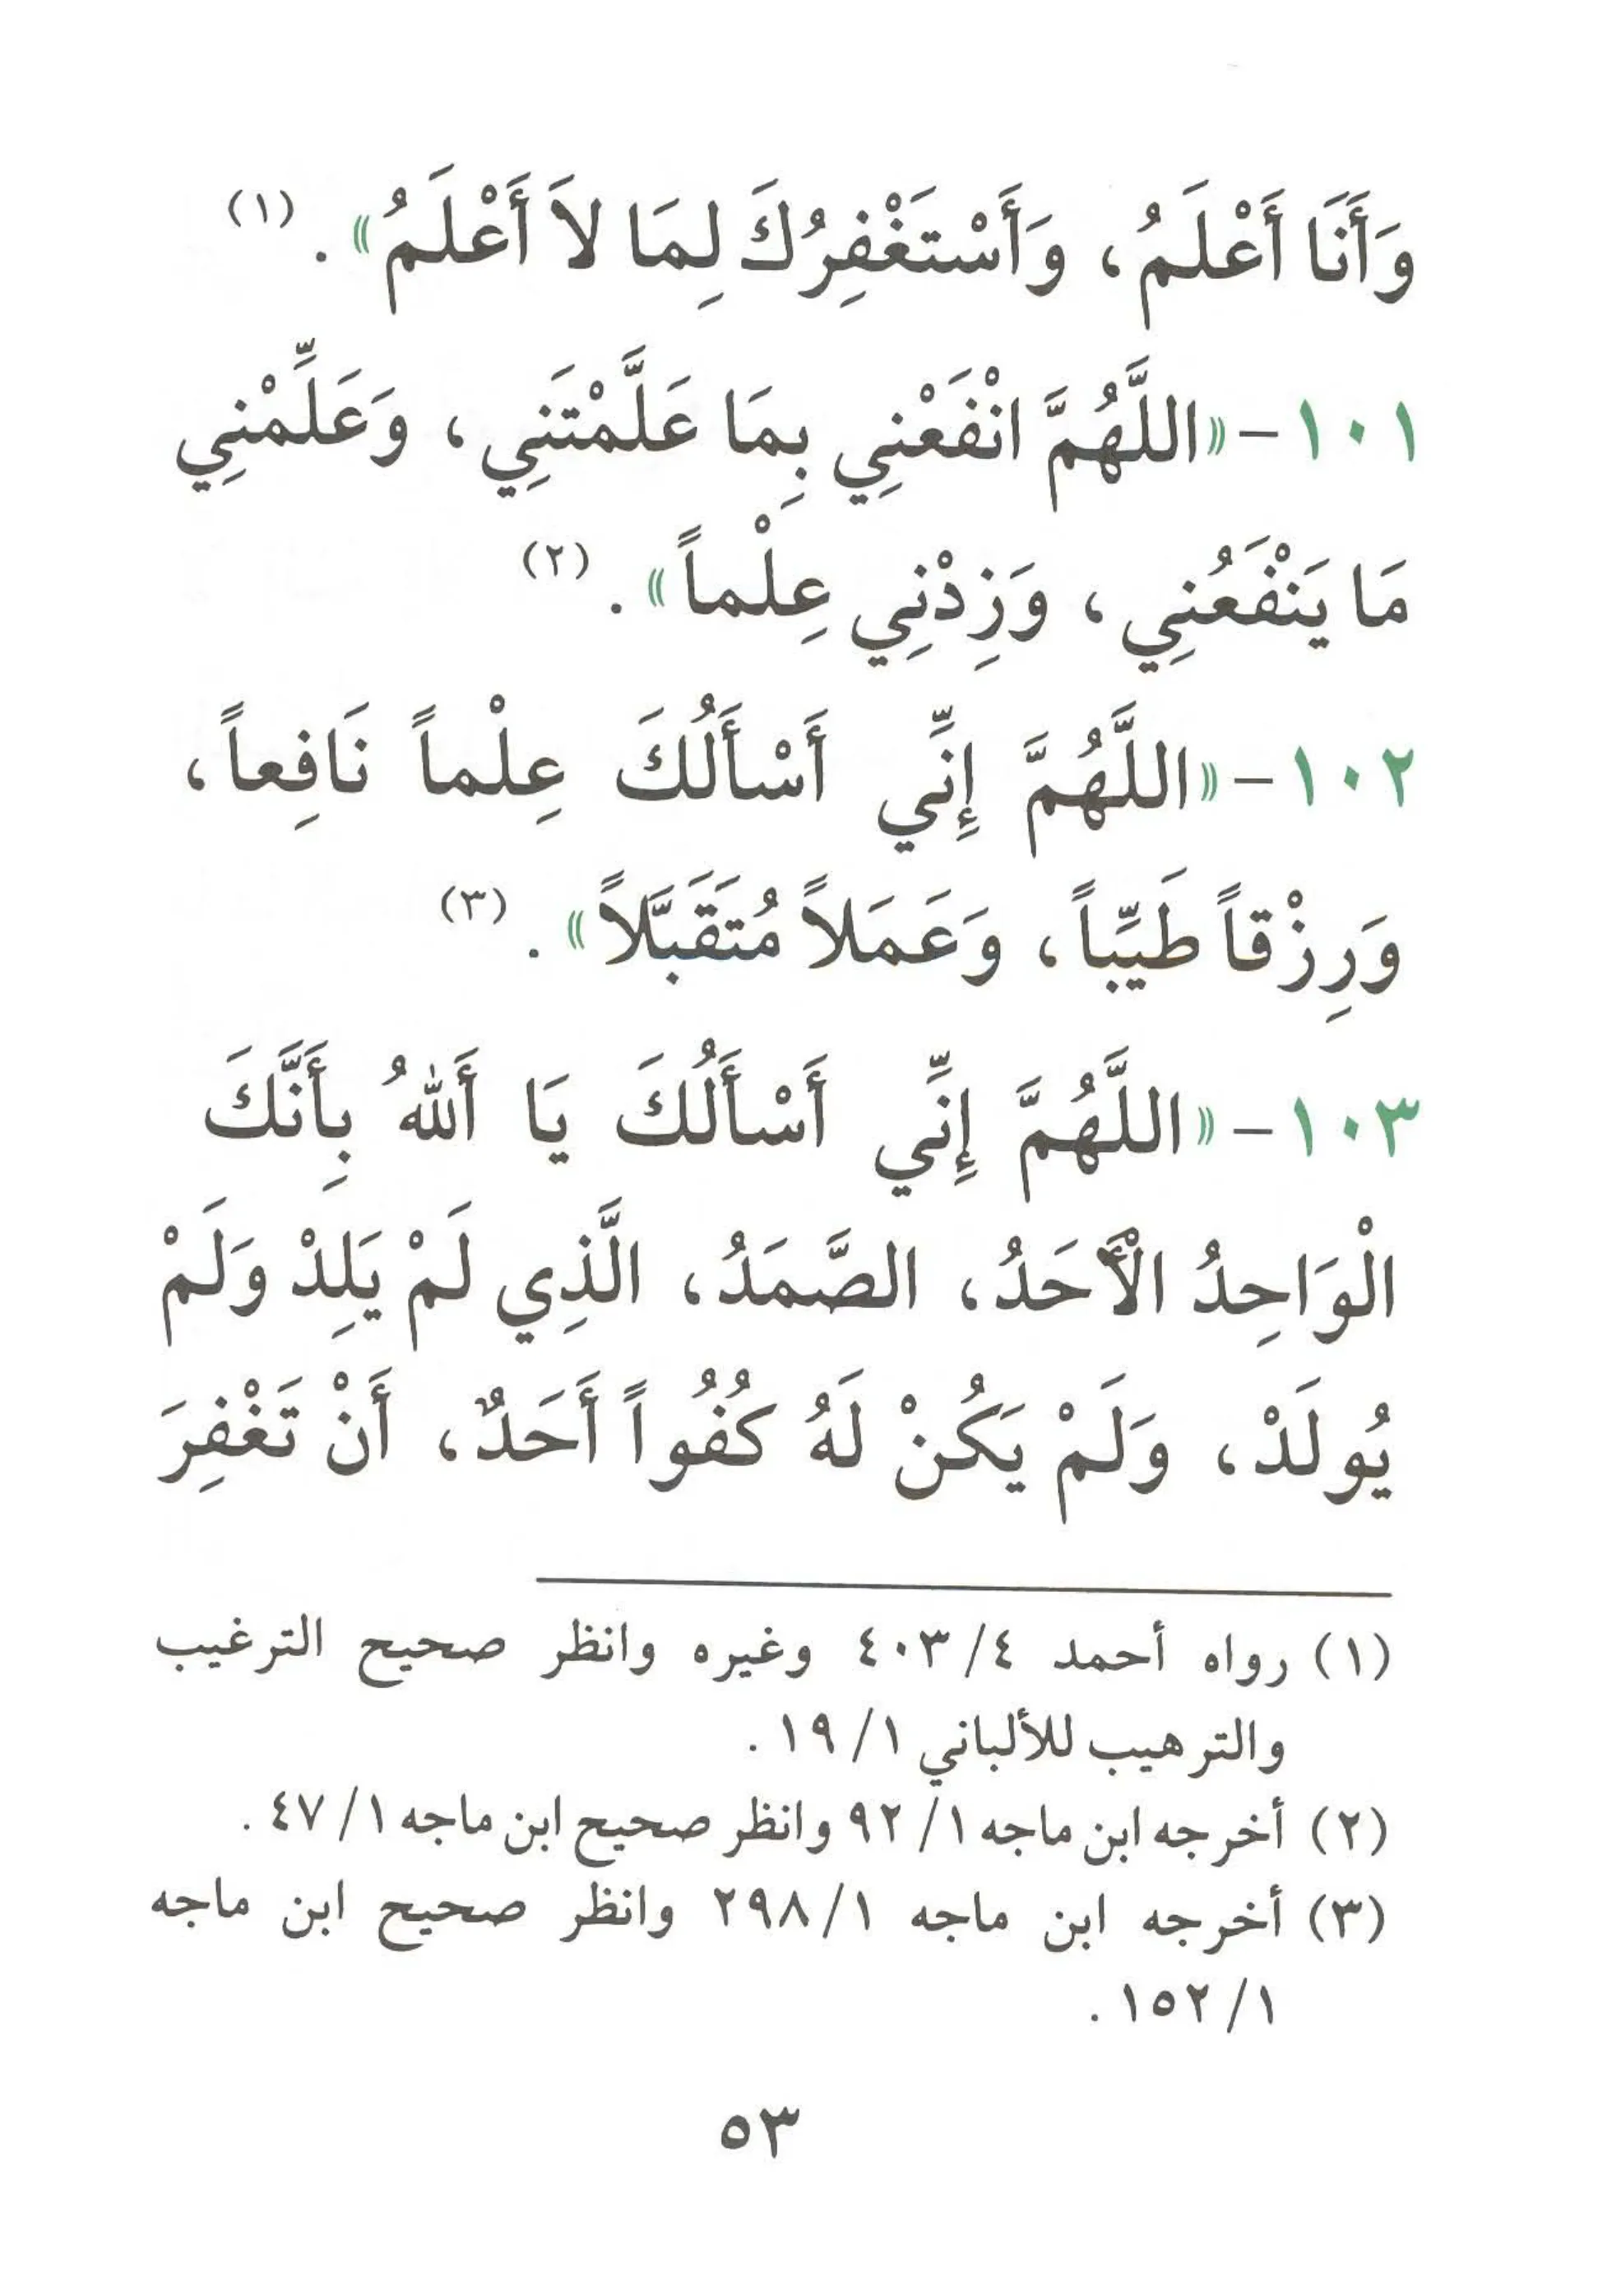 وَأَنَا أَعْلَمُ، وَأَسْتَغْفِرُكَ لِمَا لاَ أَعْلَمُ» . (١)
١٠١ - «اللَّهُمَّ انْفَعْنِي بِمَا عَلَّمْتَنِي، وَعَلِّمْنِي
مَا يَنْفَعُنِي، وَزِدْنِي عِلْماً» . (٢)
١٠٢ - «اللَّهُمَّ إِنِّي أَسْأَلُكَ عِلْماً نَافِعاً،
وَرِزْقاً طَيِّباً، وَعَمَلاً مُتَقَبَّلاً» . (٣)
١٠٣ - «اللَّهُمَّ إِنِّي أَسْأَلُكَ يَا أَللهُ بِأَنَّكَ
الْوَاحِدُ الْأَحَدُ، الصَّمَدُ، الَّذِي لَمْ يَلِدْ وَلَمْ
يُولَدْ، وَلَمْ يَكُنْ لَهُ كُفُواً أَحَدٌ، أَنْ تَغْفِرَ
(١) رواه أحمد ٤٠٣/٤ وغيره وانظر صحيح الترغيب
والترهيب للألباني ١٩/١ .
(٢) أخرجه ابن ماجه ٩٢/١ وانظر صحيح ابن ماجه ٤٧/١ .
(٣) أخرجه ابن ماجه ٢٩٨/١ وانظر صحيح ابن ماجه
١٥٢/١ .
٥٣